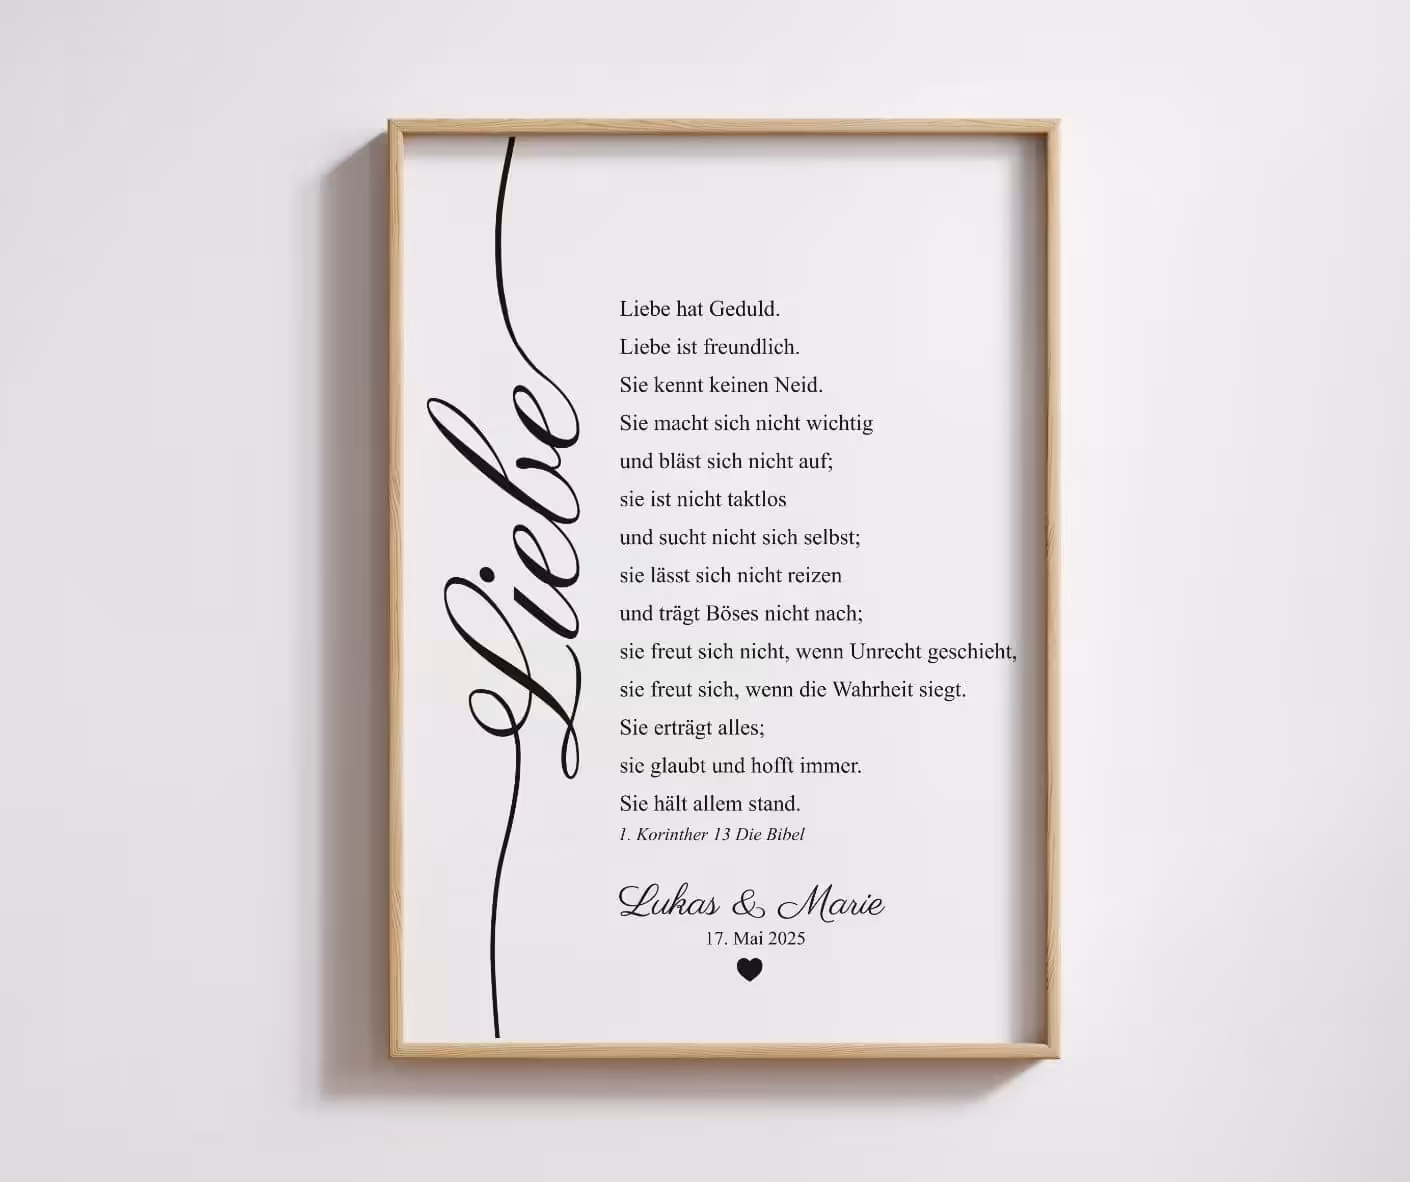 Liebe
Liebe hat Geduld.
Liebe ist freundlich.
Sie kennt keinen Neid.
Sie macht sich nicht wichtig
und bläst sich nicht auf;
sie ist nicht taktlos
und sucht nicht sich selbst;
sie lässt sich nicht reizen
und trägt Böses nicht nach;
sie freut sich nicht, wenn Unrecht geschieht,
sie freut sich, wenn die Wahrheit siegt.
Sie erträgt alles;
sie glaubt und hofft immer.
Sie hält allem stand.
1. Korinther 13 Die Bibel
Lukas & Marie
17. Mai 2025